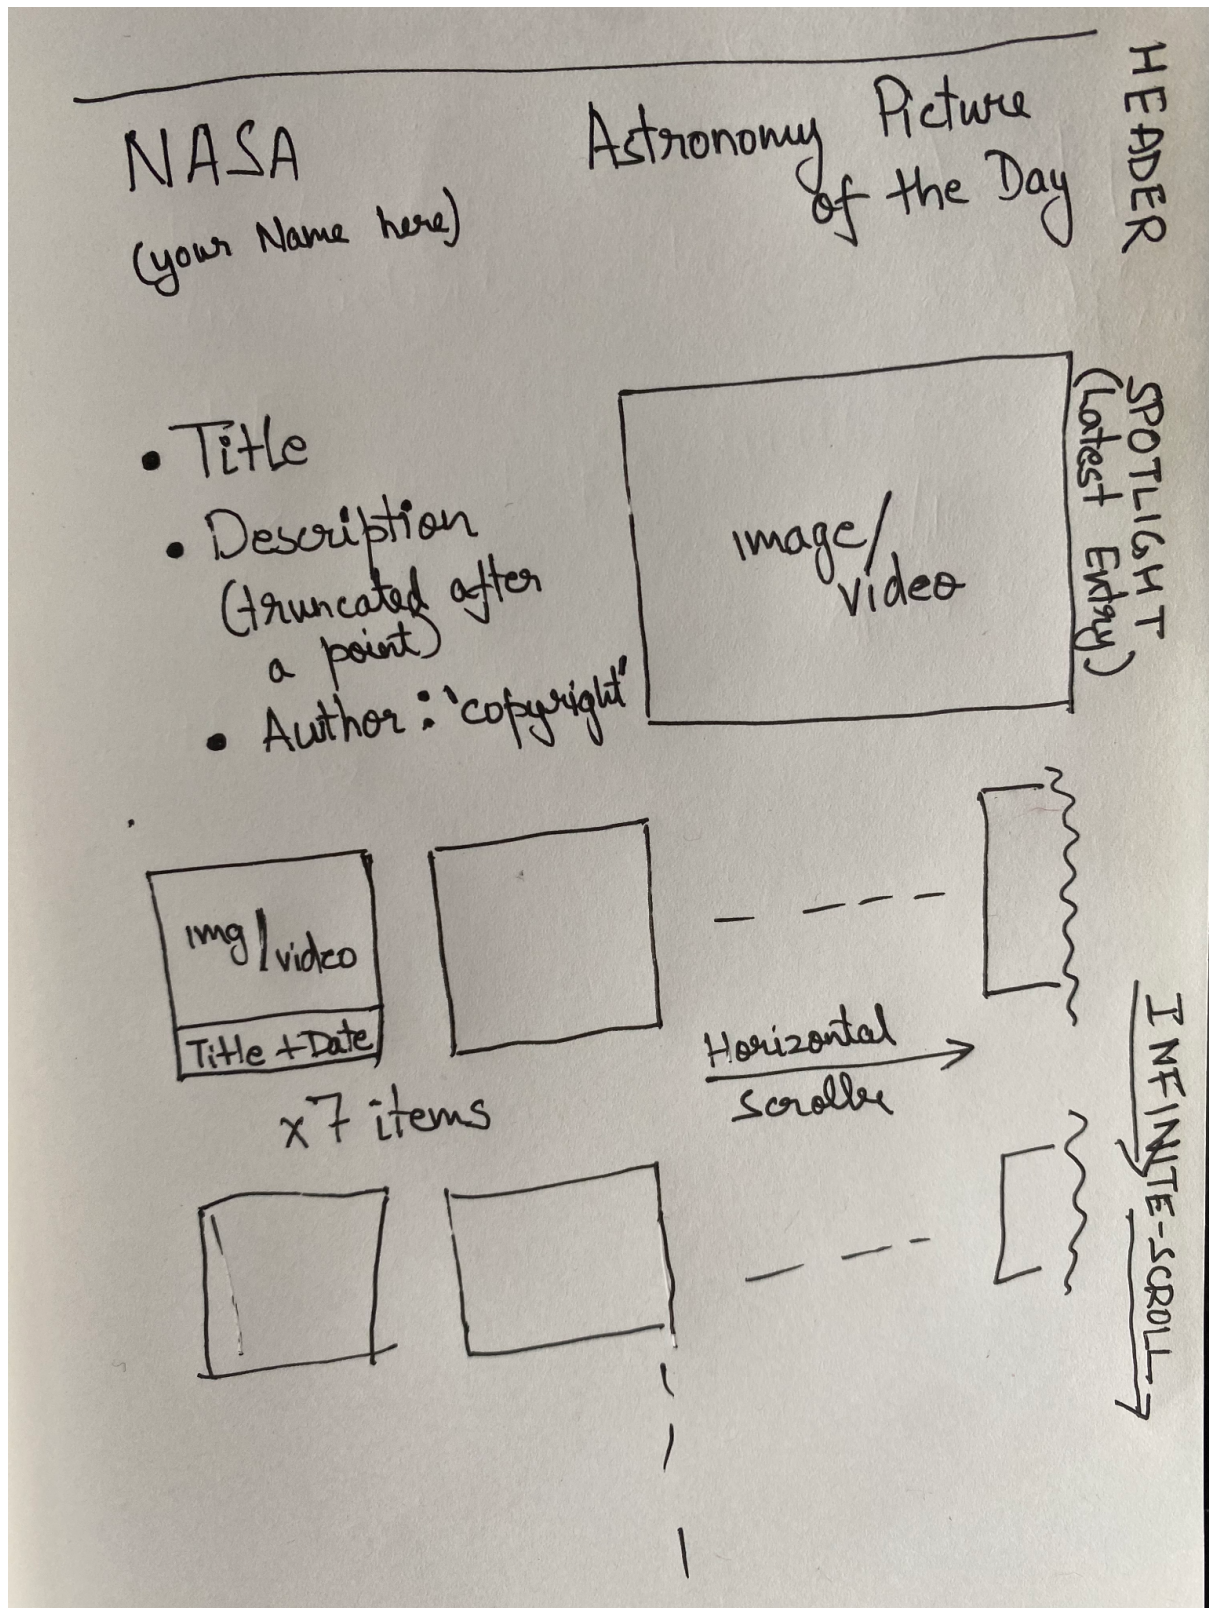 NASA
(your Name here)
Astronomy Picture
of the Day
HEADER
• Title
• Description
(truncated after
a point)
• Author : "copyright"
image/
video
SPOTLIGHT
(Latest Entry)
img/video
Title + Date
x7 items
Horizontal
Scroller
INFINITE-SCROLL